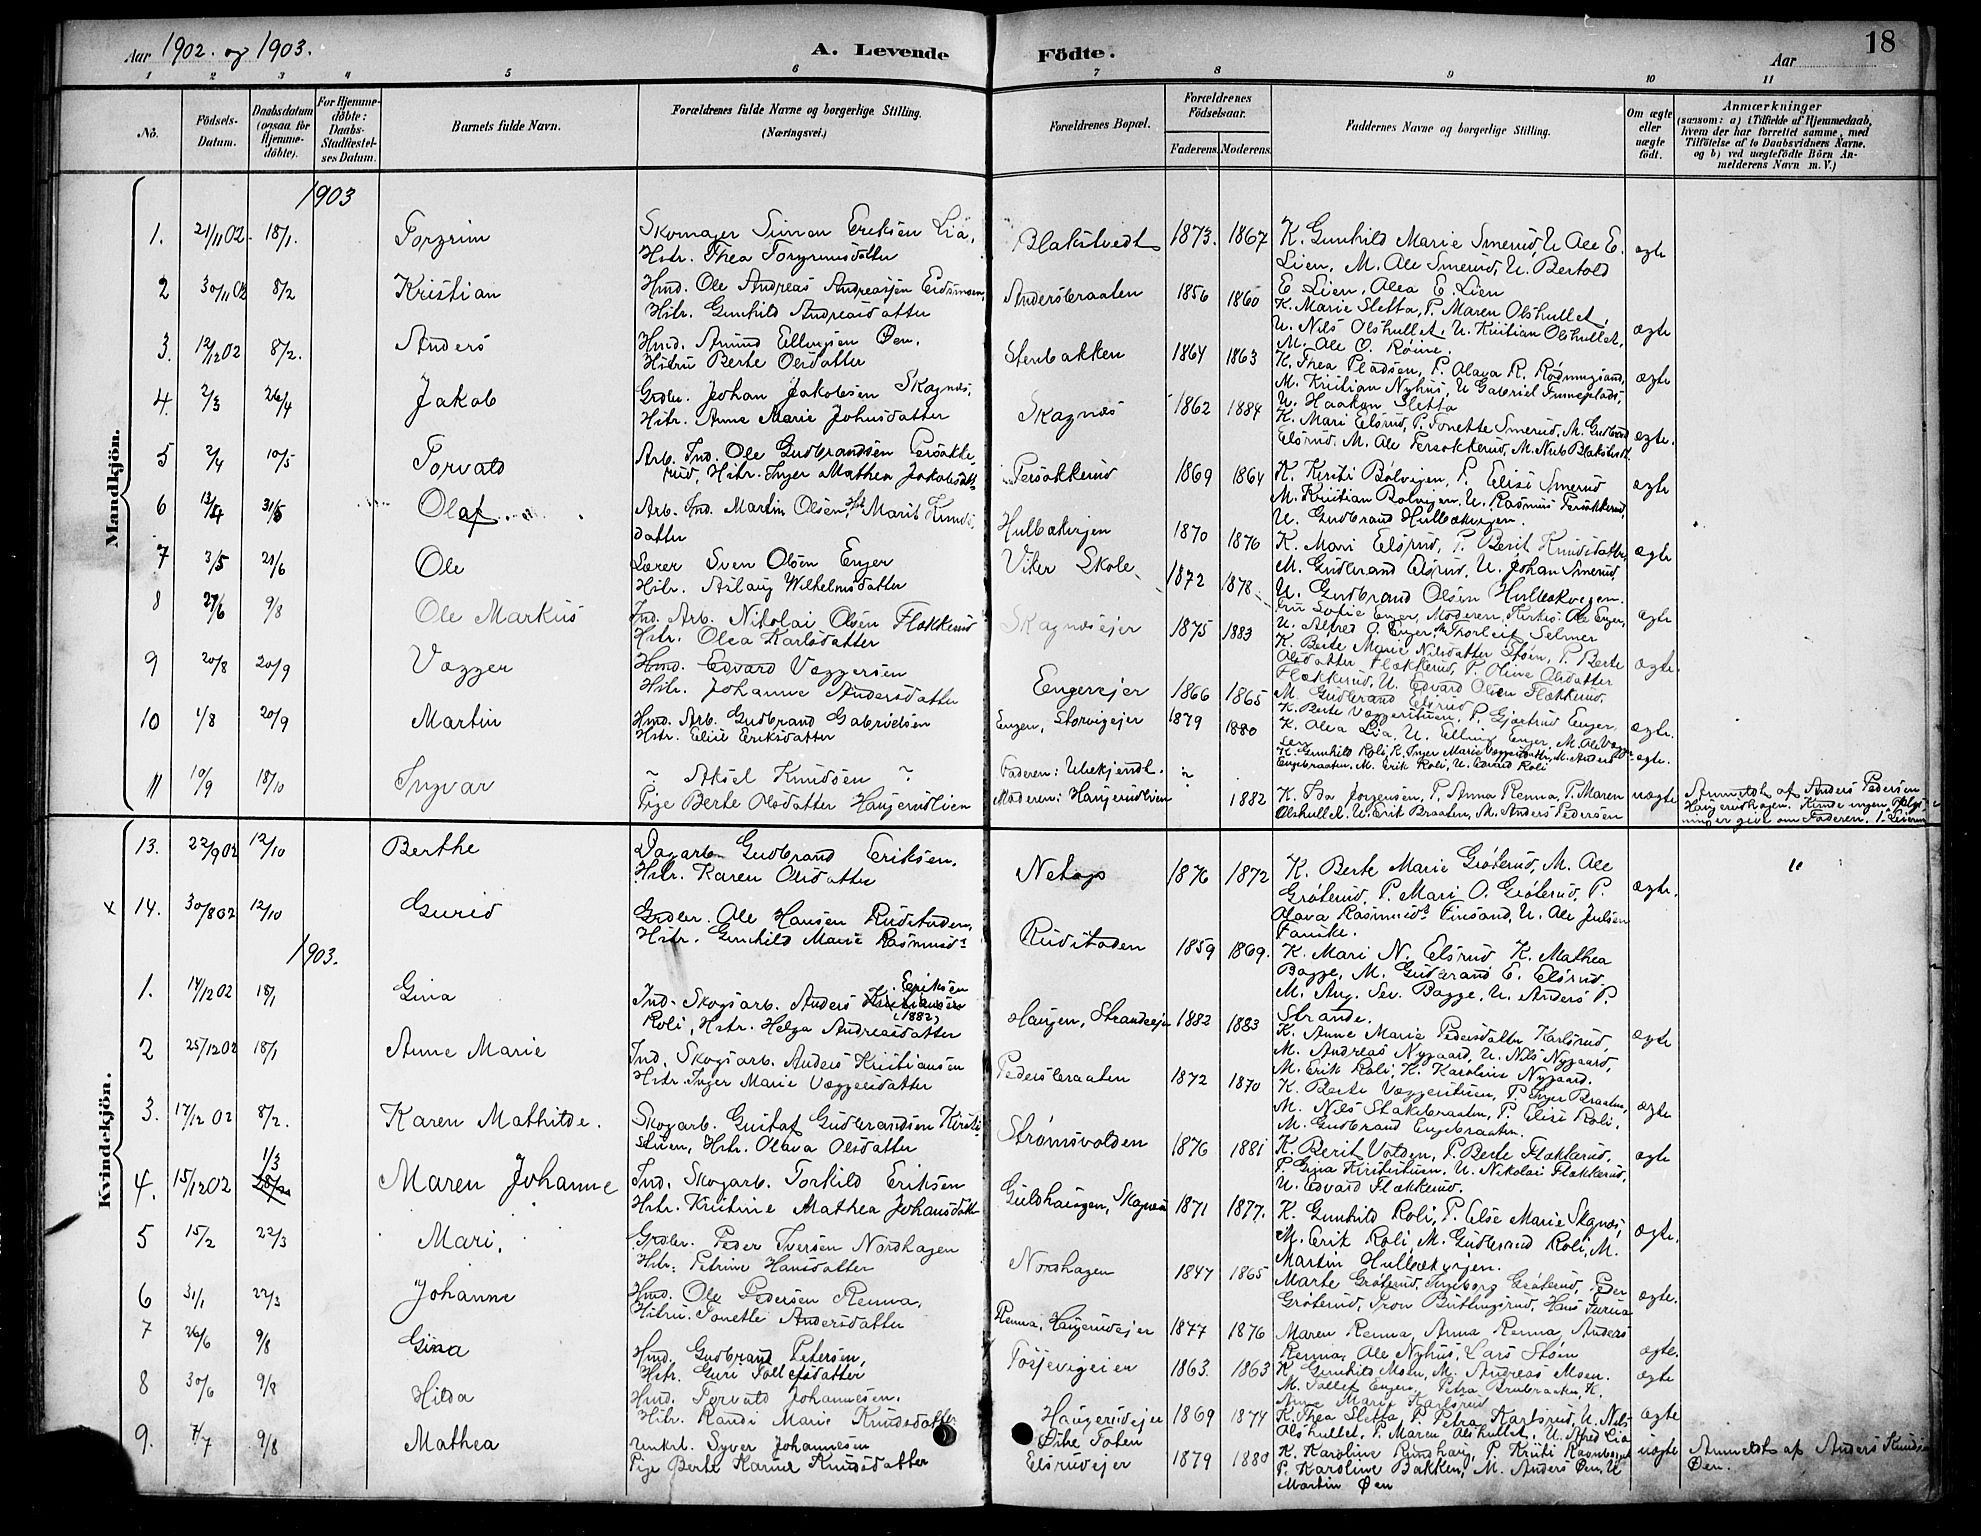 Aar 1902. og 1903. A. Levende Födte. Aar 18
1 2 3 4 5 6 7 8 9 10 11
No. Födsels-Datum. Daabsdatum (ogsaa for Hjemme-döbte). For Hjemme-döbte: Daabs-Stadfæstel-ses Datum. Barnets fulde Navn. Forældrenes fulde Navne og borgerlige Stilling. (Næringsvei.) Forældrenes Bopæl. Forældrenes Födselsaar. Faderens. Moderens. Faddernes Navne og borgerlige Stilling. Om ægte eller uægte födt. Anmærkninger (saasom: a) i Tilfælde af Hjemmedaab, hvem der har forrettet samme, med Tilföielse af to Daabsvidners Navne. og b) ved uægtefödte Börn An-melderens Navn m. V.)
Mandkjön.
1903
1. 21/11 02. 18/1. Torgrim Skomager Simon Eriksen Lia, Hstr. Thea Torgrimsdatter Blakstvedt 1873. 1867 K. Gunhild Marie Smerud, U. Ole E. Lien, M. Ole Smerud, U. Bertold E. Lien, Olea E. Lien ægte
2 30/11 02 8/2 Kristian Hmd. Ole Andreas Andreassen Eidsmoen, Hstr. Gunhild Andreasdatter Andersbraaten 1856 1860 K. Marie Sletta, P. Maren Olshullet, U. Nils Olshullet, U. Kristian Olshullet, M. Ole O. Røine. ægte
3. 12/12 02 8/2. Anders Hmd. Amund Ellingsen Øen. Hustru Berte Olsdatter Stenbakken 1864 1863 K. Thea Pladsen, P. Olava R. M. Kristian Nyhus, U. Gabriel U. Haakon Sletta ægte
4. 2/3 26/4 Jakob Grdbr. Johan Jakobsen Skagnæs, Hstr. Anne Marie Johnsdatter Skagnæs 1862 1884 K. Mari Elsrud, P. Tonette Smerud, M. Gudbrand Elsrud, M. Ole Persokkerud, M. Nub Blakstvedt ægte.
5 2/4 10/5 Torvald Arb. Ind. Ole Gudbrandsen Persokkerud, Hstr. Inger Mathea Jakobsdatt. Persokkerud 1869 1864 K. Kirsti Bølvigen, P. Elise Smerud M. Kristian Bølvigen, U. Rasmus Persokkerud, U. Gudbrand Hulbækvigen. ægte
6 13/4 31/5 Olaf Arb. Ind. Martin Olsen, Hst. Marit Knudsdatter Hulbækvigen 1870 1876 K. Mari Elsrud, P. Berit Knudsdatter, M. Gudbrand Elsrud, U. Johan Smerud, U. Gudbrand Olsen Hulbækvigen. ægte
7 3/5 21/6 Ole Lærer Sven Olsen Enger Hstr. Aslaug Wilhelmsdatter Viker Skole 1872 1878 Fru Sofie Enger, Moderen, Kirkes. Ole Enger, U. Alfred O. Enger, Thorleif Selmer ægte
8 27/6 9/8 Ole Markus Ind. Arb. Nikolai Olsen Flækkerud Hstr. Olea Karlsdatter Skagnæsejer 1875 1883 K. Berte Marie Nilsdatter Støen, P. Berte Olsdatter Flækkerud, P. Oline Olsdatter Flækkerud, U. Edvard Olsen Flækkerud, M. Gudbrand Elsrud ægte.
9 20/8 20/9 Vegger Hmd. Edvard Veggersen Hstr. Johanne Andersdatter Engerejer 1866 1865 K. Berte Væggerstuen, P. Gjartrud Enger, K. Olea Lia, U. Elling Enger, M. Ole Veggersen ægte.
10 1/8 20/9 Martin Hmd. Arb. Gudbrand Gabrielsen Hstr. Elise Eriksdatter Engen, Storvigejer 1879 1880 K. Gunhild Roli, K. Inger Marie Veggersdatter, M. Anders Engebraaten, M. Erik Roli, U. Edvard Roli ægte.
11 10/9 18/10 Ingvar ? Aksel Knudsen ? Pige Berte Olsdatter Haugerudlien Faderen: Ubekjendt. Moderen: Haugerudlien ? 1882 K. Ida Jørgensen, P. Anna Renna, P. Maren Olshullet, U. Erik Braaten, M. Anders Pedersen uægte Anmeldt af Anders Pedersen Haugerudhagen. Kunde ingen Oplysninger give om Faderen.
Kvindekjön.
13. 22/9 02 12/10 Berthe Dagarb. Gudbrand Eriksen. Hstr. Karen Olsdatter Netop 1876 1872 K. Berte Marie Grøterud, M. Ole Grøterud, P. Mari O. Grøterud, P. Olava Rasmusd. Finsand, U. Ole Julsen Fanske. ægte. "
x 14. 30/8 02 12/10 Gurid Grdbr. Ole Hansen Rudstaden, Hstr. Gunhild Marie Rasmusd. Rudstaden 1859 1869. K. Mari N. Elsrud, K. Mathea Bagge, M. Gudbrand E. Elsrud, M. Aug. Sev. Bagge, U. Anders P. Strande.
1903.
1. 14/12 02 18/1 Gina Ind. Skogsarb. Anders Eriksen (1882) Roli, Hstr. Helga Andreasdatter Haugen, Strandeejer 1882 1883 K. Anne Marie Pedersdatter Karlsrud, M. Andreas Nygaard, U. Nils Nygaard, M. Erik Roli, K. Karoline Nygaard. ægte
2 25/12 02 18/1 Anne Marie Ind. Skogsarb. Anders Kristiansen Hstr. Inger Marie Væggersdatter Pedersbraaten 1872 1870 K. Berte Væggerstuen, P. Inger Braaten, M. Nils Stakebraaten, P. Elise Roli, M. Gudbrand Engebraaten. ægte
3. 17/12 02 8/2. Karen Mathilde. Skogarb. Gustaf Gudbrandsen Kirstistuen, Hstr. Olava Olsdatter Strømsvolden 1876 1881 K. Berit Volden, P. Berte Flækkerud, P. Gina Kirstistuen, U. Nikolai Flækkerud, U. Edvard Flækkerud. ægte
4. 15/12 02 1/3 Maren Johanne Ind. Skogarb. Torkild Eriksen Hstr. Kristine Mathea Johansdatter Guldhaugen, Skagnæs 1871 1877. K. Gunhild Roli, P. Else Marie Skagnæs, M. Erik Roli, M. Gudbrand Roli, M. Martin Hulbækvigen. ægte.
5 15/2 22/3 Mari. Grdbr. Peder Iversen Nordhagen Hstr. Petrine Hansdatter Nordhagen 1847 1865 Marte Grøterud, Ingeborg Grøterud, Peder Grøterud, Tron Butlingsrud, Hans Furua ægte.
6 31/1 22/3 Johanne Hmd. Ole Pedersen Renna, Hstru. Tonette Andersdatter Renna, Haugerudejer 1877 1876 Maren Renna, Anna Renna, Anders Renna, Ole Nyhus, Lars Støen ægte.
7 26/6 9/8 Gina Hmd. Gudbrand Petersen, Hstr. Guri Tollefsdatter Tossevigeien 1863. 1863 K. Gunhild Moen, M. Andreas Moen. M. Tollef Engen, Petra Brubraaten, K. Anne Marie Karlsrud ægte
8 30/6 9/8 Hilda Hmd. Torvald Johannesen. Hstr. Randi Marie Knudsdatter Haugerudejer 1869 1874 K. Thea Sletta, P. Petra Karlsrud, U. Nils Olshullet, P. Maren Olshullet, U. Alfred Lia ægte
9. 7/7 9/8 Mathea Unkrl. Syver Johannesen Pige Berte Karine Knudsdatter Østre Toten Elsrudejer 1879 1880 K. Karoline Rundhaug, P. Kristi P. Karoline Bakken, M. Anders Øen, U Martin Øen uægte Anmeldt af Anders Knudsen Øen.